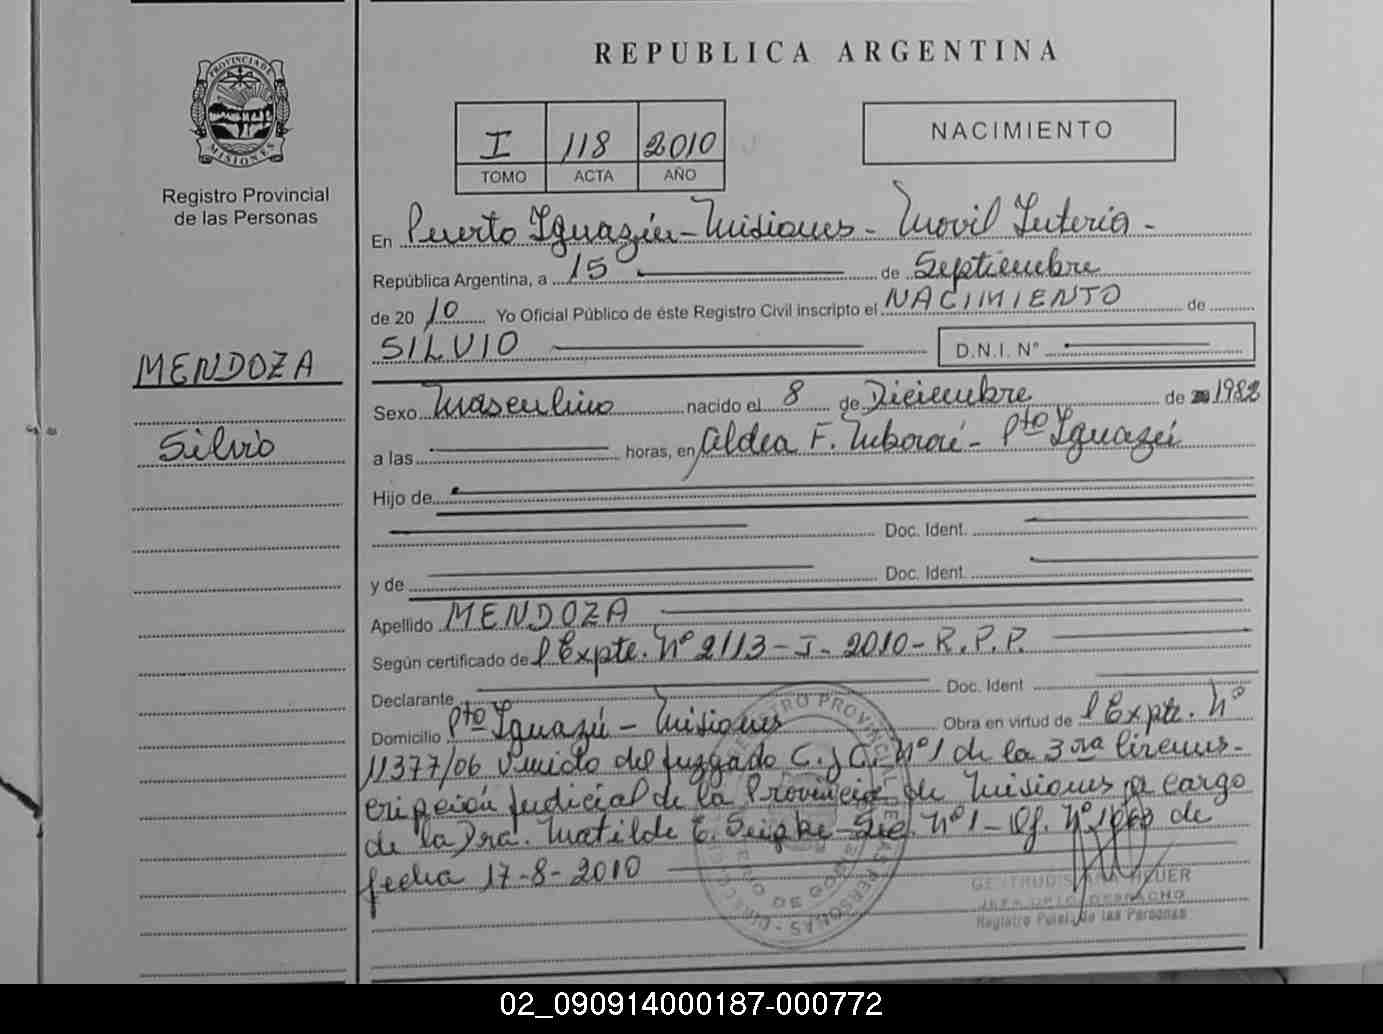 REPUBLICA ARGENTINA
PROVINCIA DE
MISIONES
Registro Provincial
de las Personas
I 118 2010
TOMO ACTA AÑO
NACIMIENTO
En Puerto Iguazú - Misiones - Movil Interia -
República Argentina, a 15 de Septiembre
de 20 10 Yo Oficial Público de éste Registro Civil inscripto el NACIMIENTO de
SILVIO D.N.I. N°
MENDOZA
Silvio
Sexo Masculino nacido el 8 de Diciembre de 1982
a las horas, en Aldea F. Mbororé - Pto Iguazú
Hijo de
Doc. Ident.
y de Doc. Ident.
Apellido MENDOZA
Según certificado de l Expte. N° 2113 - I - 2010 - R.P.P.
Declarante Doc. Ident
Domicilio Pto Iguazú - Misiones Obra en virtud de l Expte. N°
11377/06 venido del Juzgado C. y C. N° 1 de la 3ra Circuns-
cripción Judicial de la Provincia de Misiones a cargo
de la Dra. Matilde Sec. N° 1 - Of. N° de
fecha 17-8-2010
REGISTRO PROVINCIAL DE LAS PERSONAS
JEFA DPTO DESPACHO
Registro de las Personas
02_090914000187-000772